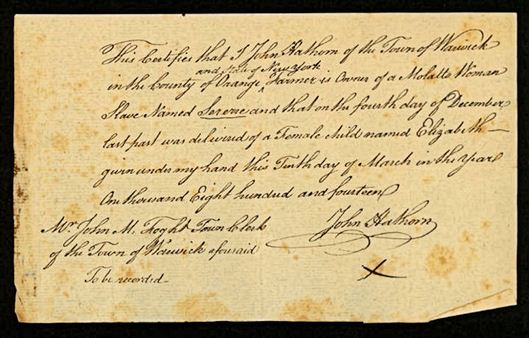 This Certifies that I John Hathorn of the Town of Warwick
and State of New York
in the County of Orange Farmer is Owner of a Molatto Woman
Slave Named Serene and that on the fourth day of December
last past was delivered of a Female child named Elizabeth
givin under my hand this Tinth day of March in the Year
One thousand Eight hundred and fourteen
John Hathorn
Mr John M. Foght Town Clerk
of the Town of Warwick aforesaid
To be recorded